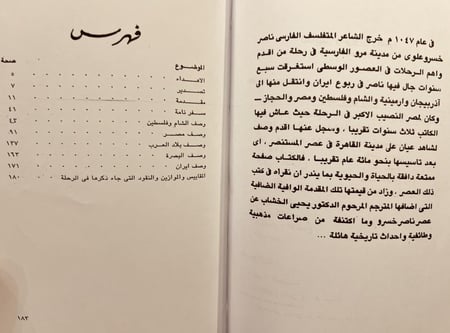 فى عام ١٠٤٧ م خرج الشاعر المتفلسف الفارسى ناصر
خسرو علوى من مدينة مرو الفارسية فى رحلة من اقدم
واهم الرحلات فى العصور الوسطى استغرقت سبع
سنوات جال فيها ناصر فى ربوع ايران وانتقل منها الى
آذربيجان وارمينية والشام وفلسطين ومصر والحجاز ــ
وكان لمصر النصيب الاكبر فى الرحلة حيث عاش فيها
الكاتب ثلاث سنوات تقريبا . وسجل عنها اقدم وصف
لشاهد عيان على مدينة القاهرة فى عصر المستنصر . اى
بعد تاسيسها بنحو مائة عام تقريبا . فالكتاب صفحة
ممتعة دافقة بالحياة والحيوية بما يندر ان نقراه فى كتب
ذلك العصر . وزاد من قيمتها تلك المقدمة الوافية الضافية
التى اضافها المترجم المرحوم الدكتور يحيى الخشاب عن
عصر ناصر خسرو وما اكتنفة من صراعات مذهبية
وطائفية واحداث تاريخية هائلة ...
فهرس
الموضوع صفحة
الاهداء ٥
تصدير ٧
مقدمة ١١
سفر نامة ٤١
وصف الشام وفلسطين ٤٣
وصف مصر ٩١
وصف بلاد العرب ١٣٧
وصف البصرة ١٦٣
وصف ايران ١٧١
المقاييس والموازين والنقود التى جاء ذكرها فى الرحلة ١٨٠
١٨٣